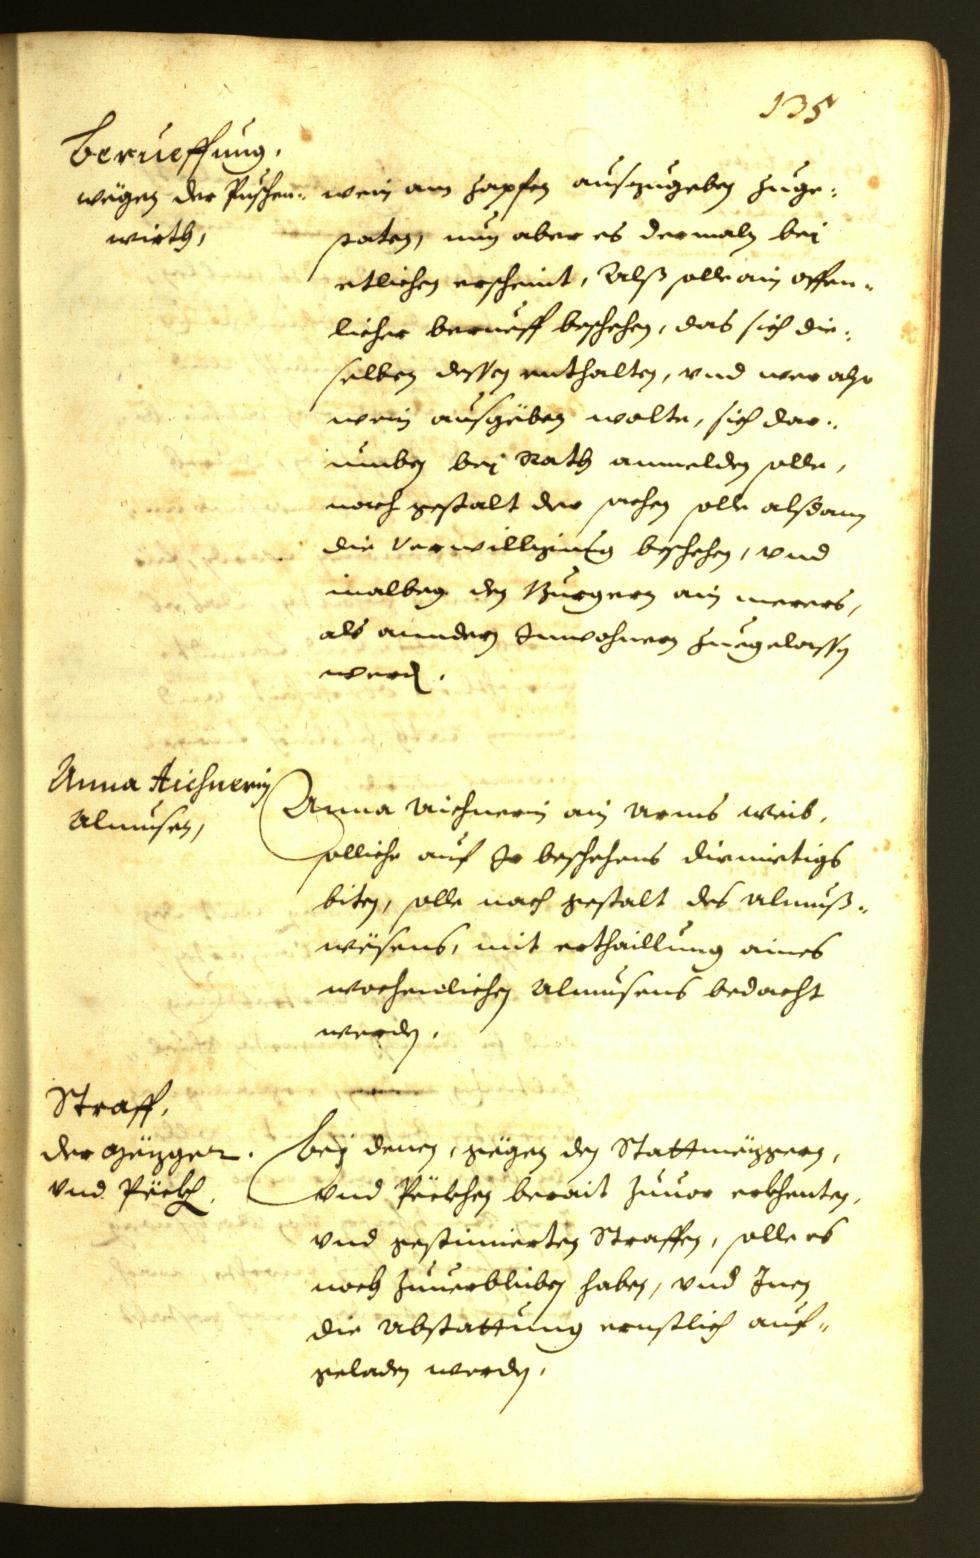 135
Berueffung,
wegen der Puschen-
wirth,
wein am zapfen auszugeben zuge-
raten, nun aber es dermaln bei
etlichen erscheint, Alß solle ain offen-
licher berueff beschehen, das sich die-
selben dessen enthalten, vnd wer also
wein ausgeben wolte, sich dar-
umben bei Rath anmelden solle,
nach gestalt der sachen solle alßdann
die Verwilligung beschehen, vnd
den Burgern ain merers,
als anndern Innwohnern zuegelassen
werden.
Anna Aichnerin
Almusen,
Anna Aichnerin ain Arms weib,
solliche auf Ir beschehens diemietigs
biten, solle nach gestalt des Almuß-
wesens, mit erthaillung aines
wochenlichen Almusens bedacht
werden.
Straff,
der Mezger
vnd Pëckh.
Bey denen, gegen den Stattmezgern,
vnd Pëckhen berait zuuor erkhenten,
vnd gestimierten Straffen, solle es
noch zuuerbleiben haben, vnd Inen
die Abstattung ernstlich auf-
geladen werden.